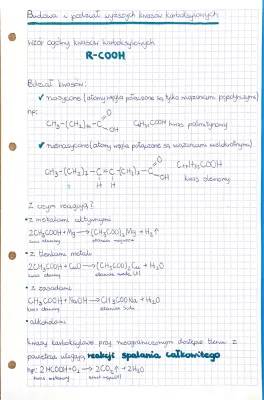 Budowa i podział wyższych kwasów karboksylowych
Wzór ogólny kwasów karboksylowych
R-COOH
Podział kwasów:
✓ nasycone (atomy węgla połączone są tylko wiązaniami pojedynczymi)
np:
CH₃-(CH₂)₁₄-C O OH C₁₅H₃₁COOH kwas palmitynowy
✓ nienasycone (atomy węgla połączone są wiązaniami wielokrotnymi)
CH₃-(CH₂)₇-C=C-(CH₂)₇-C O OH C₁₇H₃₃COOH
H H kwas oleinowy
Z czym reagują?
• z metalami aktywnymi
2CH₃COOH+Mg→(CH₃COO)₂Mg + H₂↑
kwas octowy octan magnezu
• z tlenkami metali
2CH₃COOH + CuO→(CH₃COO)₂Cu + H₂O
kwas octowy
• z zasadami
CH₃COOH + NaOH→CH₃COONa + H₂O
kwas octowy octan sodu
• alkoholami
Kwasy karboksylowe przy nieograniczonym dostępie tlenu z
powietrza ulegają reakcji spalania całkowitego
np: 2HCOOH+O₂→2CO₂↑ + 2H₂O